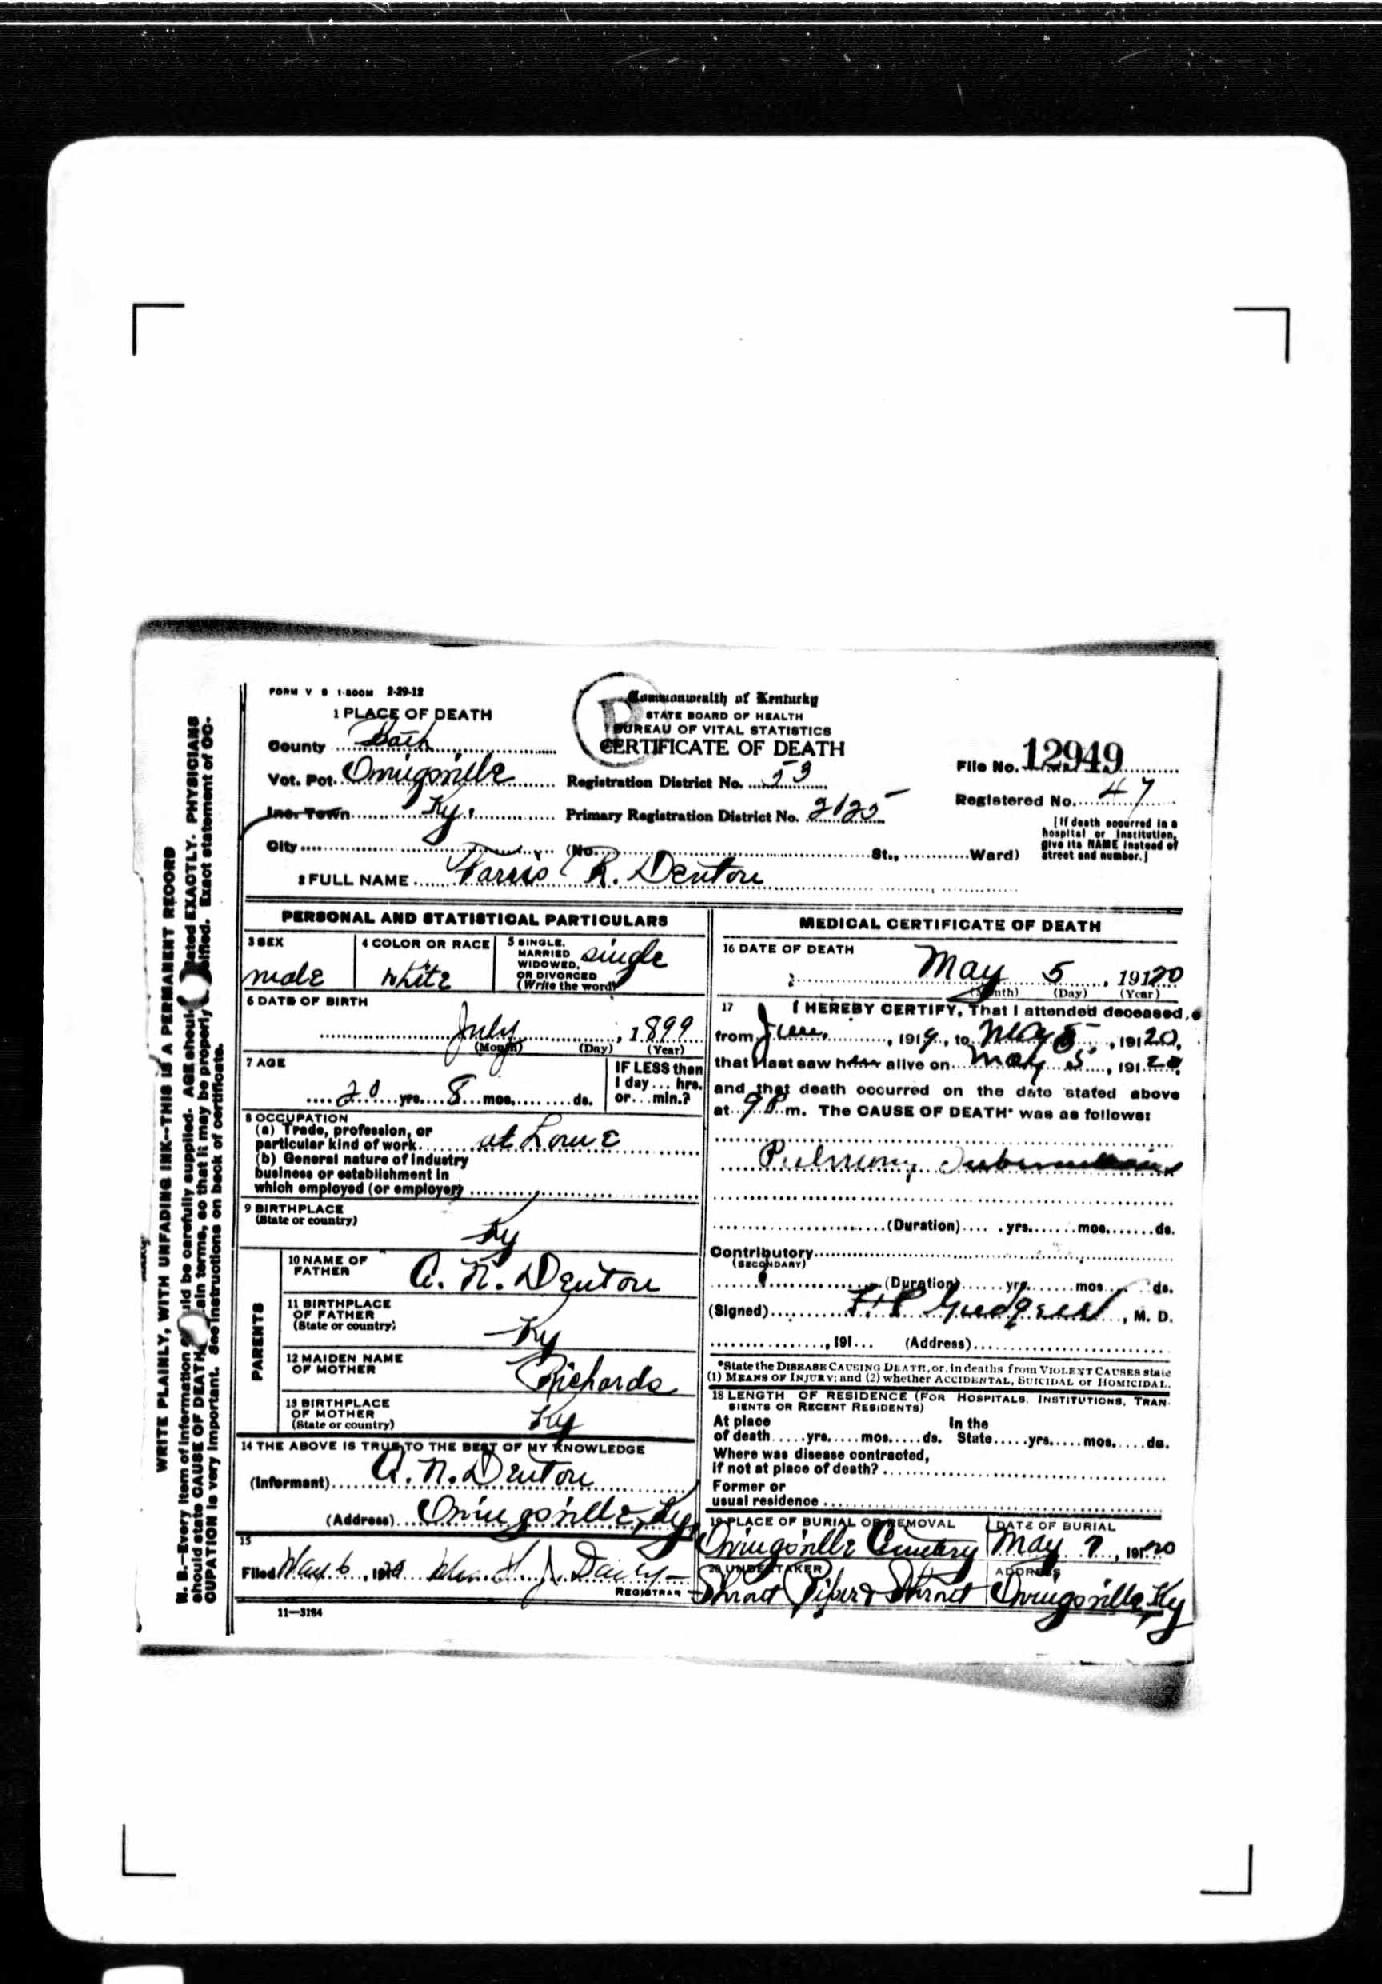 FORM V S 1-500M 2-29-12
Commonwealth of Kentucky
STATE BOARD OF HEALTH
BUREAU OF VITAL STATISTICS
CERTIFICATE OF DEATH
1 PLACE OF DEATH
County Bath
Vot. Pct. Owingsville Registration District No. 53
File No. 12949
Inc. Town Ky. Primary Registration District No. 2125
Registered No. 47
City (No. St., Ward)
[If death occurred in a hospital or institution, give its NAME instead of street and number.]
2 FULL NAME R. Denton
PERSONAL AND STATISTICAL PARTICULARS
3 SEX male
4 COLOR OR RACE white
5 SINGLE, MARRIED WIDOWED, OR DIVORCED (Write the word) single
6 DATE OF BIRTH
July, 1899
(Month) (Day) (Year)
7 AGE
20 yrs. 8 mos. ds.
IF LESS than 1 day... hrs. or... min.?
8 OCCUPATION
(a) Trade, profession, or particular kind of work. at home
(b) General nature of industry business or establishment in which employed (or employer)
9 BIRTHPLACE
(State or country)
Ky
PARENTS
10 NAME OF FATHER A. N. Denton
11 BIRTHPLACE OF FATHER (State or country) Ky
12 MAIDEN NAME OF MOTHER Richards
13 BIRTHPLACE OF MOTHER (State or country) Ky
14 THE ABOVE IS TRUE TO THE BEST OF MY KNOWLEDGE
(Informant) A. N. Denton
(Address) Owingsville, Ky
15
Filed May 6, 1920 J. Daily
REGISTRAR
11-3184
MEDICAL CERTIFICATE OF DEATH
16 DATE OF DEATH
May 5, 19120
(Month) (Day) (Year)
17 I HEREBY CERTIFY, That I attended deceased,
from, 1919, to May 5, 19120,
that I last saw him alive on May 5, 19120,
and that death occurred on the date stated above
at 9 P m. The CAUSE OF DEATH* was as follows:
Pulmony Tuberculosis
(Duration) yrs. mos. ds.
Contributory
(SECONDARY)
(Duration) yrs. mos. ds.
(Signed) Gudgell, M. D.
, 191 (Address)
*State the DISEASE CAUSING DEATH, or, in deaths from VIOLENT CAUSES state
(1) MEANS OF INJURY; and (2) whether ACCIDENTAL, SUICIDAL or HOMICIDAL.
18 LENGTH OF RESIDENCE (FOR HOSPITALS, INSTITUTIONS, TRANSIENTS OR RECENT RESIDENTS)
At place of death yrs. mos. ds. In the State yrs. mos. ds.
Where was disease contracted,
if not at place of death?
Former or
usual residence
19 PLACE OF BURIAL OR REMOVAL
Owingsville Cemetery
DATE OF BURIAL
May 7, 19120
20 UNDERTAKER
Shrout Piper & Shrout
ADDRESS
Owingsville, Ky
WRITE PLAINLY, WITH UNFADING INK--THIS IS A PERMANENT RECORD
N. B.--Every item of information should be carefully supplied. AGE should stated EXACTLY. PHYSICIANS
should state CAUSE OF DEATH plain terms, so that it may be properly classified. Exact statement of OC-
CUPATION is very important. See instructions on back of certificate.